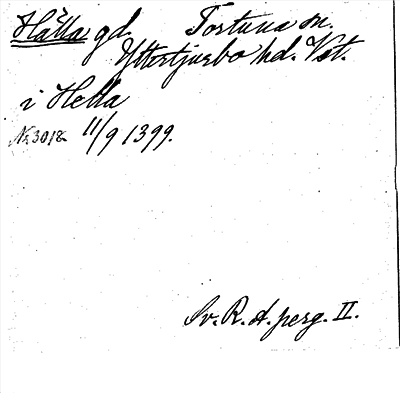 Hälla gd Tortuna sn.
Yttertjurbo hd. Vst.
i Hella
Nr 3018 11/9 1399.
Sv. R. A. perg. II.